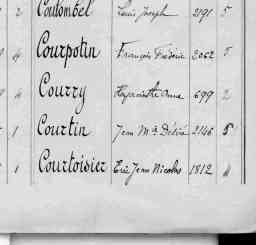 2 Coulombel Louis Joseph 2191 5
4 Courpotin François Frédéric 2062 5
4 Courry Hyacinthe Anne 699 2
1 Courtin Jean Mie Désiré 2146 5
1 Courtoisier Eric Jean Nicolas 1812 4